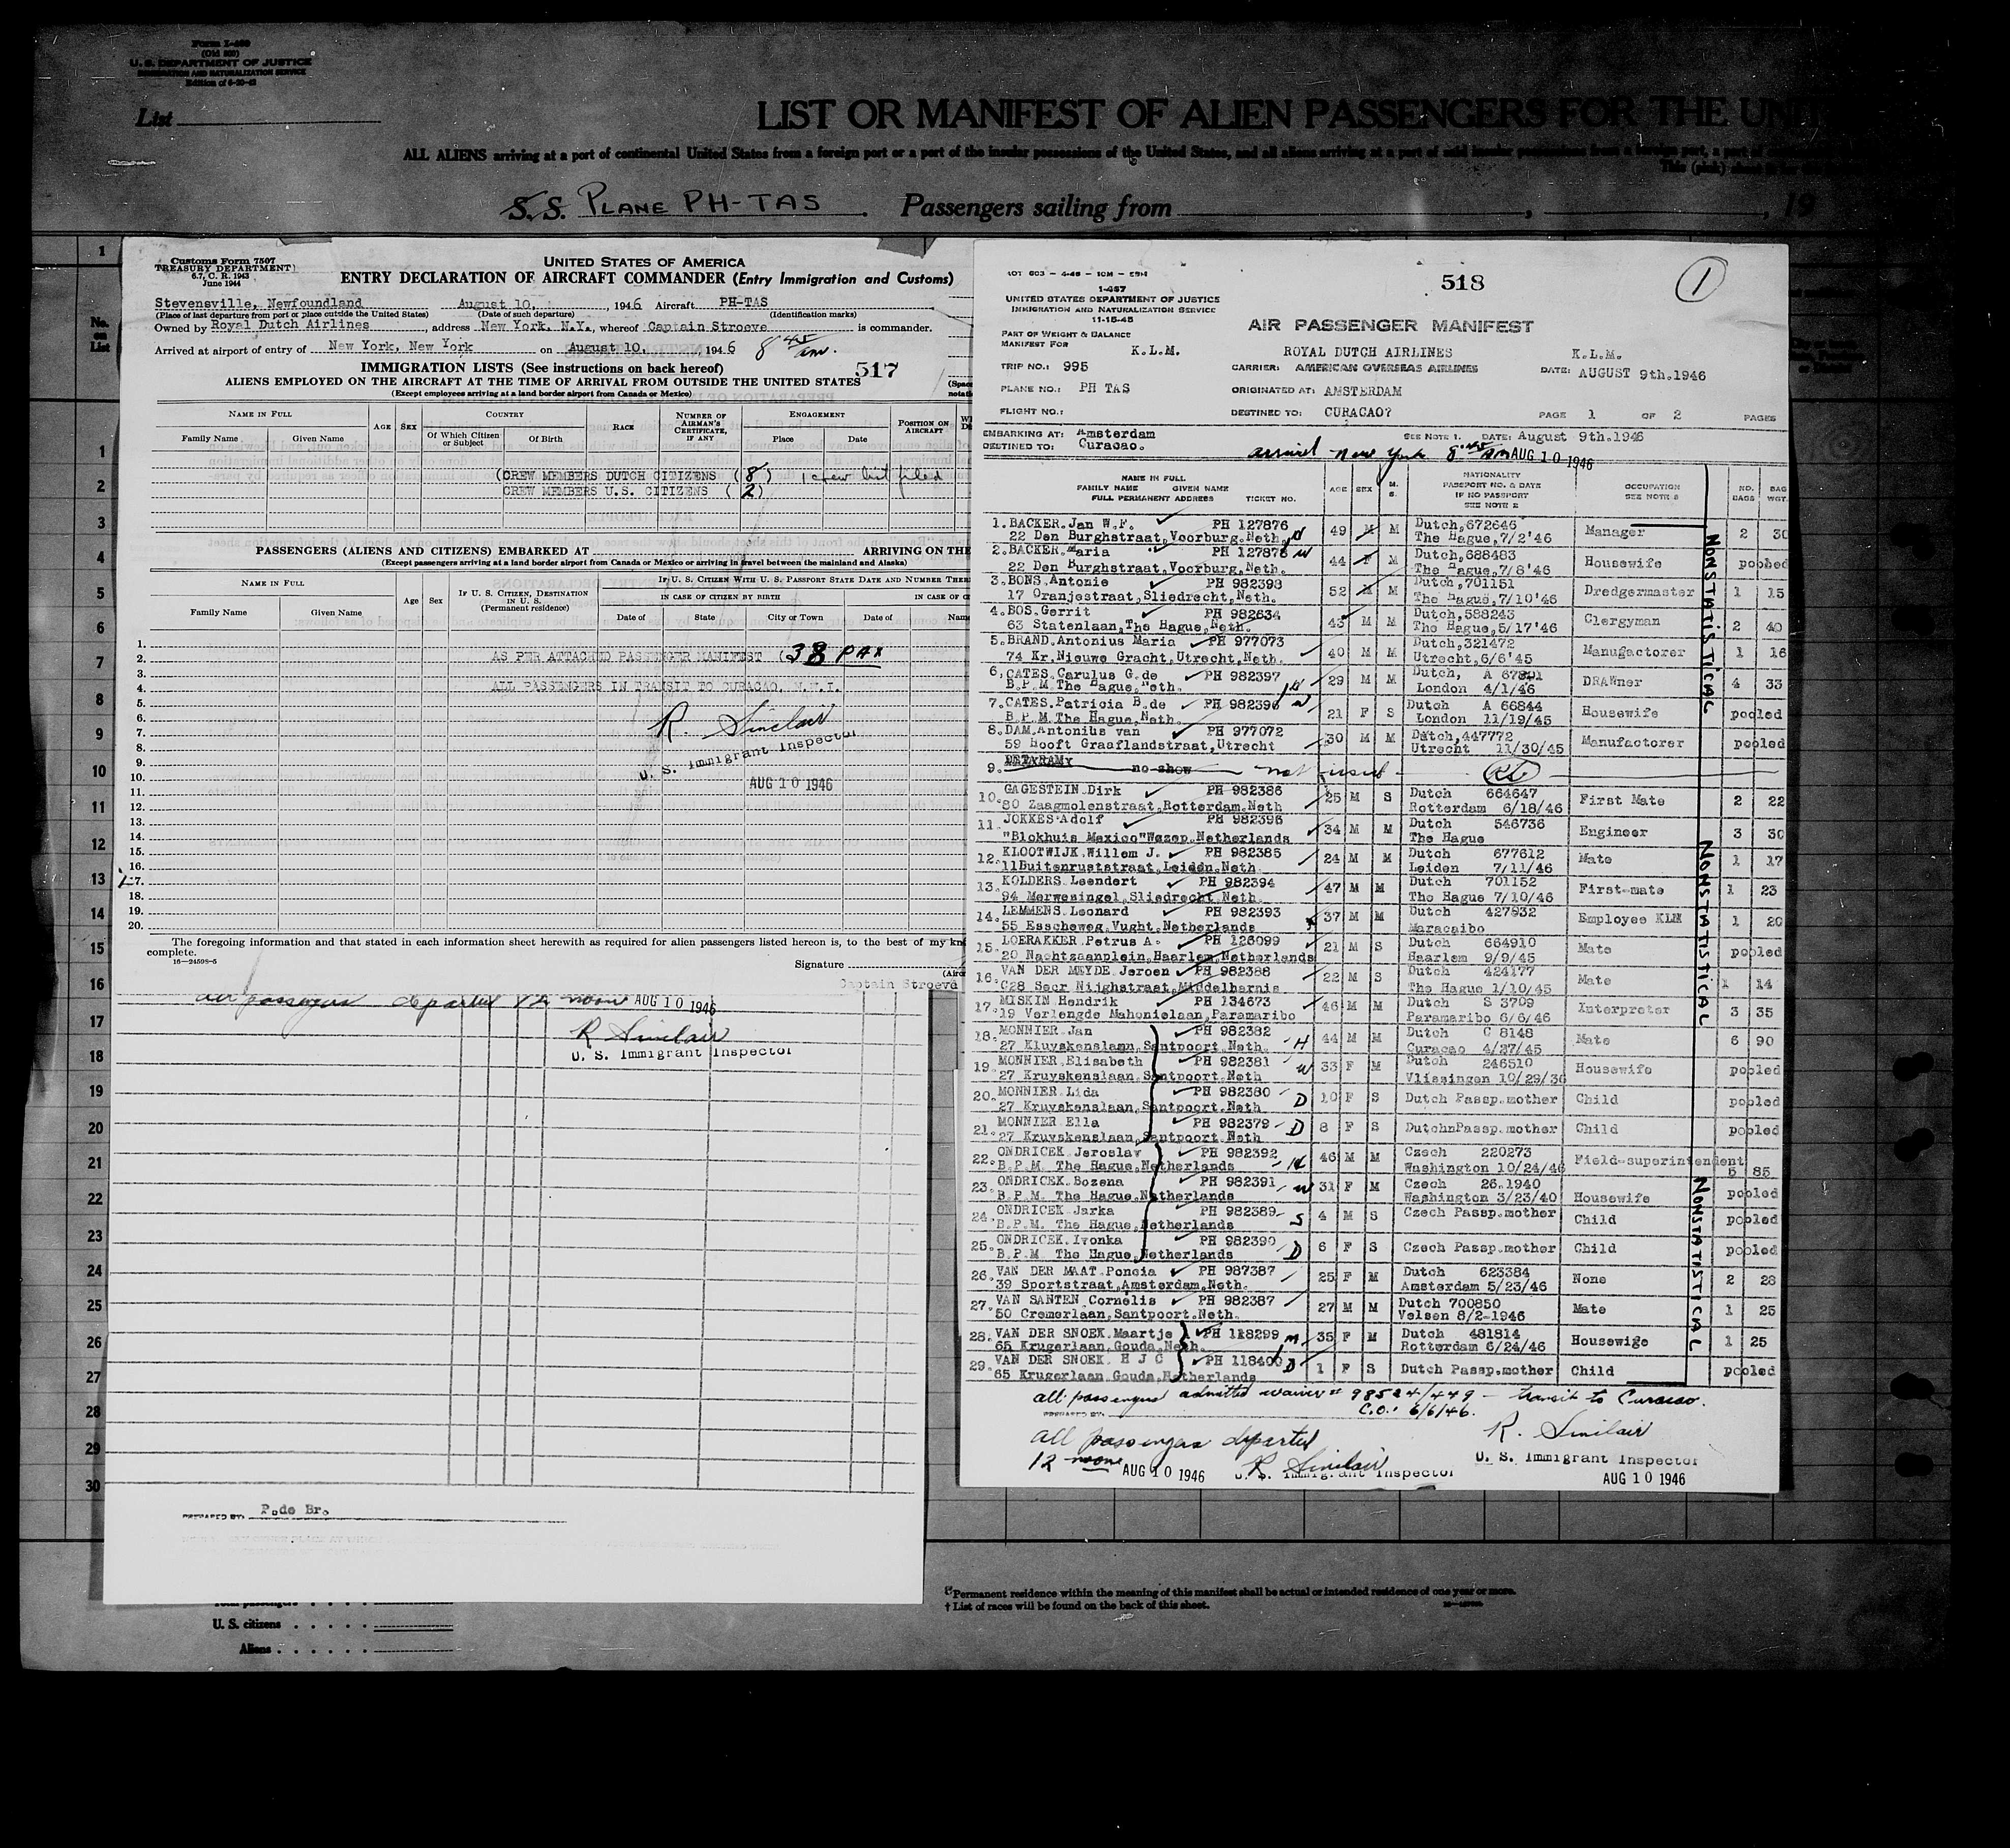 Form I-460
(Old 500)
U. S. DEPARTMENT OF JUSTICE
IMMIGRATION AND NATURALIZATION SERVICE
List
LIST OR MANIFEST OF ALIEN PASSENGERS FOR THE UNIT
ALL ALIENS arriving at a port of continental United States from a foreign port or a port of the insular possessions of the United States, and all aliens arriving at a port of said insular possessions from a foreign port, a port of
This (pink) sheet
S.S. PLANE PH-TAS . Passengers sailing from , , 19
No. on List
1
2
3
4
5
6
7
8
9
10
11
12
13
14
15
16
17
18
19
20
21
22
23
24
25
26
27
28
29
30
Customs Form 7507
TREASURY DEPARTMENT
6.7, C. R. 1943
June 1944
UNITED STATES OF AMERICA
ENTRY DECLARATION OF AIRCRAFT COMMANDER (Entry Immigration and Customs)
Stevensville, Newfoundland August 10, , 1946 Aircraft PH-TAS
(Place of last departure from port or place outside the United States) (Date of such departure) (Identification marks)
Owned by Royal Dutch Airlines , address New York, N.Y., whereof Captain Stroeve is commander.
Arrived at airport of entry of New York, New York on August 10, , 1946 8 45 am.
IMMIGRATION LISTS (See instructions on back hereof) 517
ALIENS EMPLOYED ON THE AIRCRAFT AT THE TIME OF ARRIVAL FROM OUTSIDE THE UNITED STATES
(Except employees arriving at a land border airport from Canada or Mexico)
NAME IN FULL AGE SEX COUNTRY RACE NUMBER OF AIRMAN'S CERTIFICATE, IF ANY ENGAGEMENT POSITION ON AIRCRAFT
Family Name Given Name Of Which Citizen or Subject Of Birth Place Date
(CREW MEMBERS DUTCH CITIZENS (8) 1 crew list filed
CREW MEMBERS U.S. CITIZENS (2)
PASSENGERS (ALIENS AND CITIZENS) EMBARKED AT ARRIVING ON THE
(Except passengers arriving at a land border airport from Canada or Mexico or arriving in travel between the mainland and Alaska)
NAME IN FULL Age Sex IF U. S. CITIZEN, DESTINATION IN U. S. (Permanent residence) IF U. S. CITIZEN WITH U. S. PASSPORT STATE DATE AND NUMBER THERE
IN CASE OF CITIZEN BY BIRTH IN CASE OF
Family Name Given Name Date of State City or Town Date of Name
1.
2. AS PER ATTACHED PASSENGER MANIFEST (38 PAX
3.
4. ALL PASSENGERS IN TRANSIT TO CURACAO, N.W.I.
5.
6. R. Sinclair
7.
8. U. S. Immigrant Inspector
9.
10. AUG 10 1946
11.
12.
13.
14.
15.
16.
17.
18.
19.
20.
The foregoing information and that stated in each information sheet herewith as required for alien passengers listed hereon is, to the best of my kn
complete.
16—24598-5
Signature
Captain Stroeve
all passengers departed 12 noon AUG 10 1946
R Sinclair
U. S. Immigrant Inspector
PREPARED BY: P.de Br.
518
1
I-457
UNITED STATES DEPARTMENT OF JUSTICE
IMMIGRATION AND NATURALIZATION SERVICE
11-15-45
AIR PASSENGER MANIFEST
PART OF WEIGHT & BALANCE
MANIFEST FOR K.L.M. ROYAL DUTCH AIRLINES K.L.M.
TRIP NO: 995 CARRIER: AMERICAN OVERSEAS AIRLINES DATE: AUGUST 9th.1946
PLANE NO.: PH TAS ORIGINATED AT: AMSTERDAM
FLIGHT NO.: DESTINED TO: CURACAO? PAGE 1 OF 2 PAGES
EMBARKING AT: Amsterdam SEE NOTE 1. DATE: August 9th.1946
DESTINED TO: Curacao.
arrived New York 8:45 AM AUG 10 1946
NAME IN FULL
FAMILY NAME GIVEN NAME
FULL PERMANENT ADDRESS TICKET NO. AGE SEX M. S. NATIONALITY PASSPORT NO. & DATE IF NO PASSPORT SEE NOTE 2 OCCUPATION SEE NOTE 3 NO. BAGS BAG WGT.
1. BACKER Jan W.F. PH 127876 49 M M Dutch,672646 Manager 2 30
22 Den Burghstraat,Voorburg.Neth. The Hague,7/2'46
2. BACKER Maria PH 127878 W 44 F M Dutch,688483 Housewife pooled
22 Den Burghstraat,Voorburg.Neth. The Hague,7/8'46
3. BONS Antonie PH 982398 52 M M Dutch,701151 Dredgermaster 1 15
17 Oranjestraat,Sliedrecht,Neth. The Hague,7/10'46
4. BOS Gerrit PH 982634 43 M M Dutch,588243 Clergyman 2 40
63 Statenlaan,The Hague,Neth. The Hague,5/17'46
5. BRAND Antonius Maria PH 977073 40 M M Dutch,321472 Manugactorer 1 16
74 Kr.Nieuwe Gracht,Utrecht,Neth. Utrecht,6/6'45
6. CATES Carulus G.de PH 982397 H 29 M M Dutch, A 67891 DRAWner 4 33
B.P.M The Hague,Neth. London 4/1/46
7. CATES Patricia B.de PH 982396 W 21 F S Dutch A 66844 Housewife pooled
B.P.M.The Hague,Neth. London 11/19/45
8. DAM.Antonius van PH 977072 30 M M Dutch,447772 Manufactorer pooled
59 Hooft Graaflandstraat,Utrecht Utrecht 11/30/45
9. no show
10. GAGESTEIN Dirk PH 982386 25 M S Dutch 664647 First Mate 2 22
80 Zaagmolenstraat,Rotterdam.Neth Rotterdam 6/18/46
11. JOKKES Adolf PH 982396 34 M M Dutch 546736 Engineer 3 30
"Blokhuis Mexico"Wezep.Netherlands The Hague
12. KLOOTWIJK.Willem J. PH 982385 24 M M Dutch 677612 Mate 1 17
11Buitenruststraat,Leiden.Neth. Leiden 7/11/46
13. KOLDERS Leendert PH 982394 47 M M Dutch 701152 First-mate 1 23
94 Merwesingel,Sliedrecht Neth. The Hague 7/10/46
14. LEMMENS Leonard PH 982393 37 M M Dutch 427932 Employee KLM 1 20
55 Esscheweg,Vught,Netherlands Maracaibo
15. LOERAKKER Petrus A. PH 126099 21 M S Dutch 664910 Mate pooled
20 Nachtzaanplein,Haarlem,Netherlands Haarlem 9/9/45
16. VAN DER MEYDE Jeroen PH 982388 22 M S Dutch 424177 Mate 1 14
C28 Secr Nijghstraat,Middelharnis The Hague 1/10/45
17. MISKIN Hendrik PH 134673 46 M M Dutch S 3709 Interpreter 3 35
19 Verlengde Mahonielaan,Paramaribo Paramaribo 6/6/46
18. MONNIER Jan PH 982382 H 44 M M Dutch C 8148 Mate 6 90
27 Kluyskenslamn,Santpoort Neth. Curacao 4/37/45
19. MONNIER Elisabeth PH 982381 W 33 F M Dutch 246510 Housewife pooled
27 Kruyskenslaan,Santpoort Neth Vlissingen 10/29/36
20. MONNIER Lida PH 982380 D 10 F S Dutch Passp.mother Child pooled
27 Kruyskenslaan,Santpoort.Neth
21. MONNIER Ella PH 982379 D 8 F S DutchnPassp.mother Child pooled
27 Kruyskenslaan,Santpoort Neth
22. ONDRICEK Jeroslav PH 982392 H 46 M M Czech 220273 Field-superintendent 5 85
B.P.M. The Hague,Netherlands Washington 10/24/46
23. ONDRICEK Bozena PH 982391 W 31 F M Czech 26.1940 Housewife pooled
B.P.M. The Hague,Netherlands Washington 3/23/40
24. ONDRICEK Jarka PH 982389 S 4 M S Czech Passp.mother Child pooled
B.P.M. The Hague,Netherlands
25. ONDRICEK Ivonka PH 982390 D 6 F S Czech Passp.mother Child pooled
B.P.M The Hague,Netherlands
26. VAN DER MAAT Poncia PH 987387 25 F M Dutch 623384 None 2 28
39 Sportstraat,Amsterdam,Neth. Amsterdam 5/23/46
27. VAN SANTEN Cornelis PH 982387 27 M M Dutch 700850 Mate 1 25
50 Cremerlaan,Santpoort.Neth. Velsen 8/2-1946
28. VAN DER SNOEK Maartje PH 118299 M 35 F M Dutch 481814 Housewige 1 25
65 Krugerlaan,Gouda,Neth. Rotterdam 6/24/46
29. VAN DER SNOEK H J C PH 118400 D 1 F S Dutch Passp.mother Child pooled
65 Krugerlaan Gouda,Netherlands
NONSTATISTICAL
NONSTATISTICAL
NONSTATISTICAL
all passengers admitted waiver # 98524/449 - transit to Curacao.
C.O.: 6/6/46.
PREPARED BY:
all passengers departed R. Sinclair
12 noon AUG 10 1946 R Sinclair U. S. Immigrant Inspector U. S. Immigrant Inspector
AUG 10 1946
Permanent residence within the meaning of this manifest shall be actual or intended residence of one year or more.
† List of races will be found on the back of this sheet.
Total passengers
U. S. citizens
Aliens